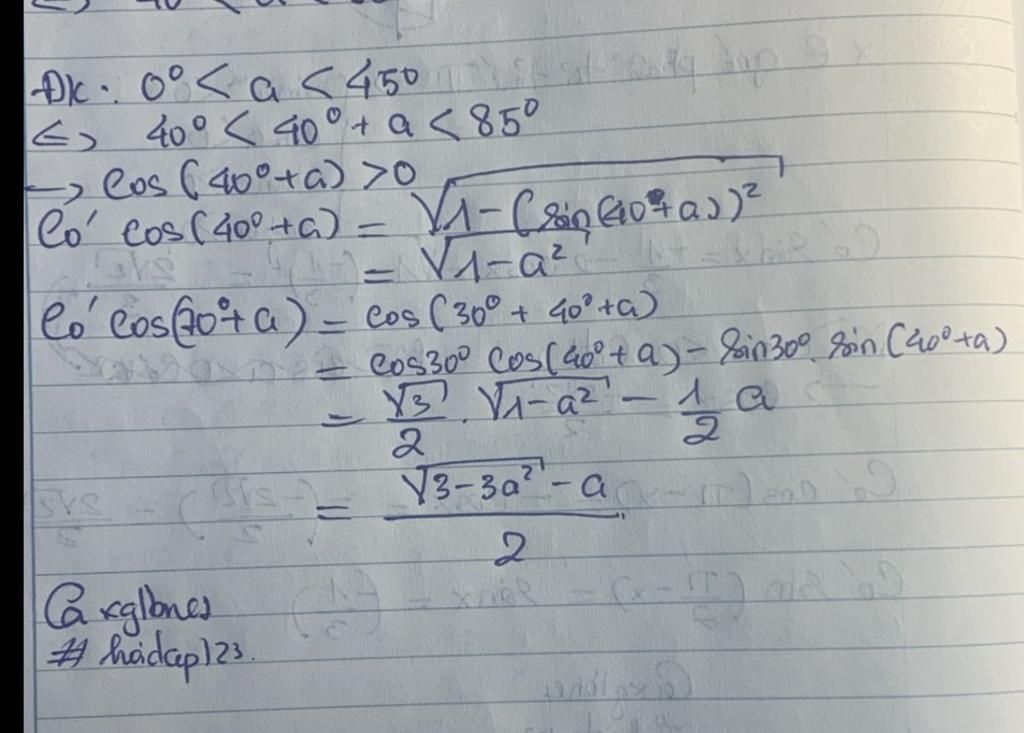 Đk: 0° < a < 45°
<=> 40° < 40° + a < 85°
-> cos (40° + a) > 0
Có cos(40° + a) = √(1 - (sin(40° + a))²)
= √(1 - a²)
Có cos(70° + a) = cos(30° + 40° + a)
= cos30° cos(40° + a) - sin30°. sin(40° + a)
= √3/2 . √(1 - a²) - 1/2 a
= (√(3 - 3a²) - a)/2
@xglbnes
# hoidap123.